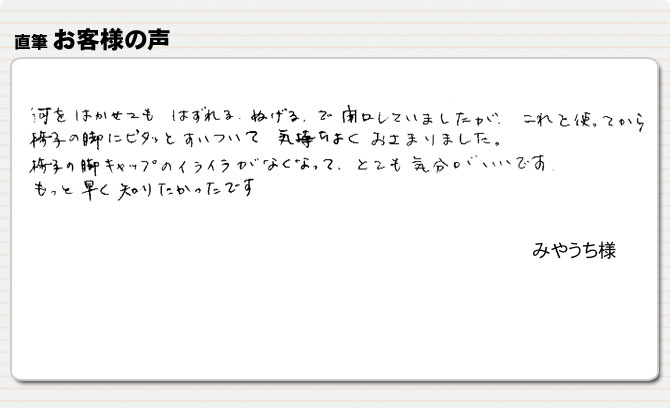 直筆 お客様の声
何をはかせても はずれる、ぬげる、で閉口していましたが、これを使ってから
椅子の脚にピタッとすいついて 気持ちよく おさまりました。
椅子の脚キャップのイライラがなくなって、とても気分がいいです。
もっと早く知りたかったです
みやうち様